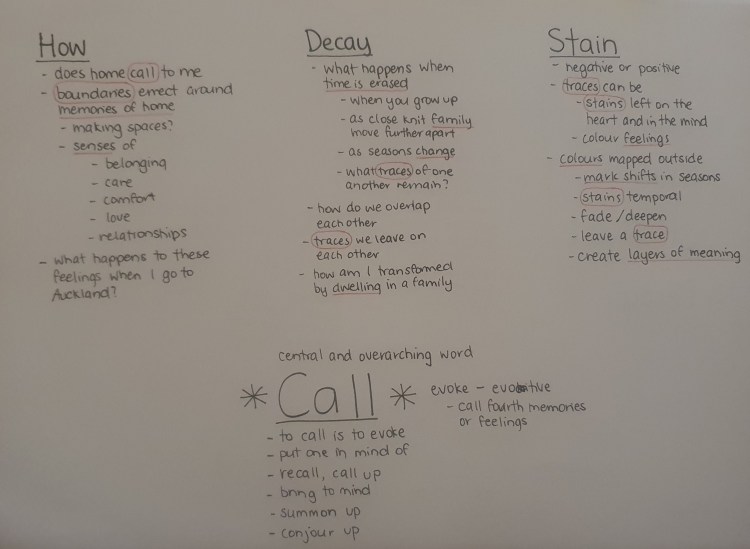 How
- does home call to me
- boundaries errect around
memories of home
- making spaces?
- senses of
- belonging
- care
- comfort
- love
- relationships
- what happens to these
feelings when I go to
Auckland?
Decay
- what happens when
time is erased
- when you grow up
- as close knit family
move further apart
- as seasons change
- what traces of one
another remain?
- how do we overlap
each other
- traces we leave on
each other
- how am I transformed
by dwelling in a family
Stain
- negative or positive
- traces can be
- stains left on the
heart and in the mind
- colour feelings
- colours mapped outside
- mark shifts in seasons
- stains temporal
- fade / deepen
- leave a trace
- create layers of meaning
central and overarching word
* Call *
evoke - evocative
- call fourth memories
or feelings
- to call is to evoke
- put one in mind of
- recall, call up
- bring to mind
- summon up
- conjour up